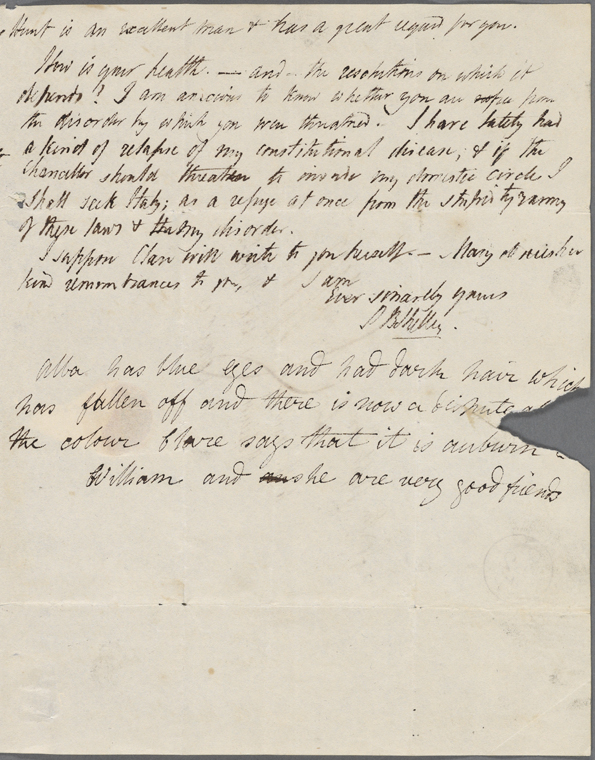 Hunt is an excellent man & has a great regard for you.
How is your health. — and — the resolutions on which it
depends? I am anxious to know whether you are free from
the disorder by which you were threatened. I have lately had
a kind of relapse of my constitutional disease; & if the
Chancellor should threaten to invade my domestic circle I
shall seek Italy; as a refuge at once from the stupid tyranny
of these laws & my disorder.
I suppose Clare will write to you herself. — Mary desires her
kind remembrances to you, & I am
Ever sincerely yours
PBShelley.
Alba has blue eyes and had dark hair which
has fallen off and there is now a dispute
the colour Clare says that it is auburn
William and she are very good friends